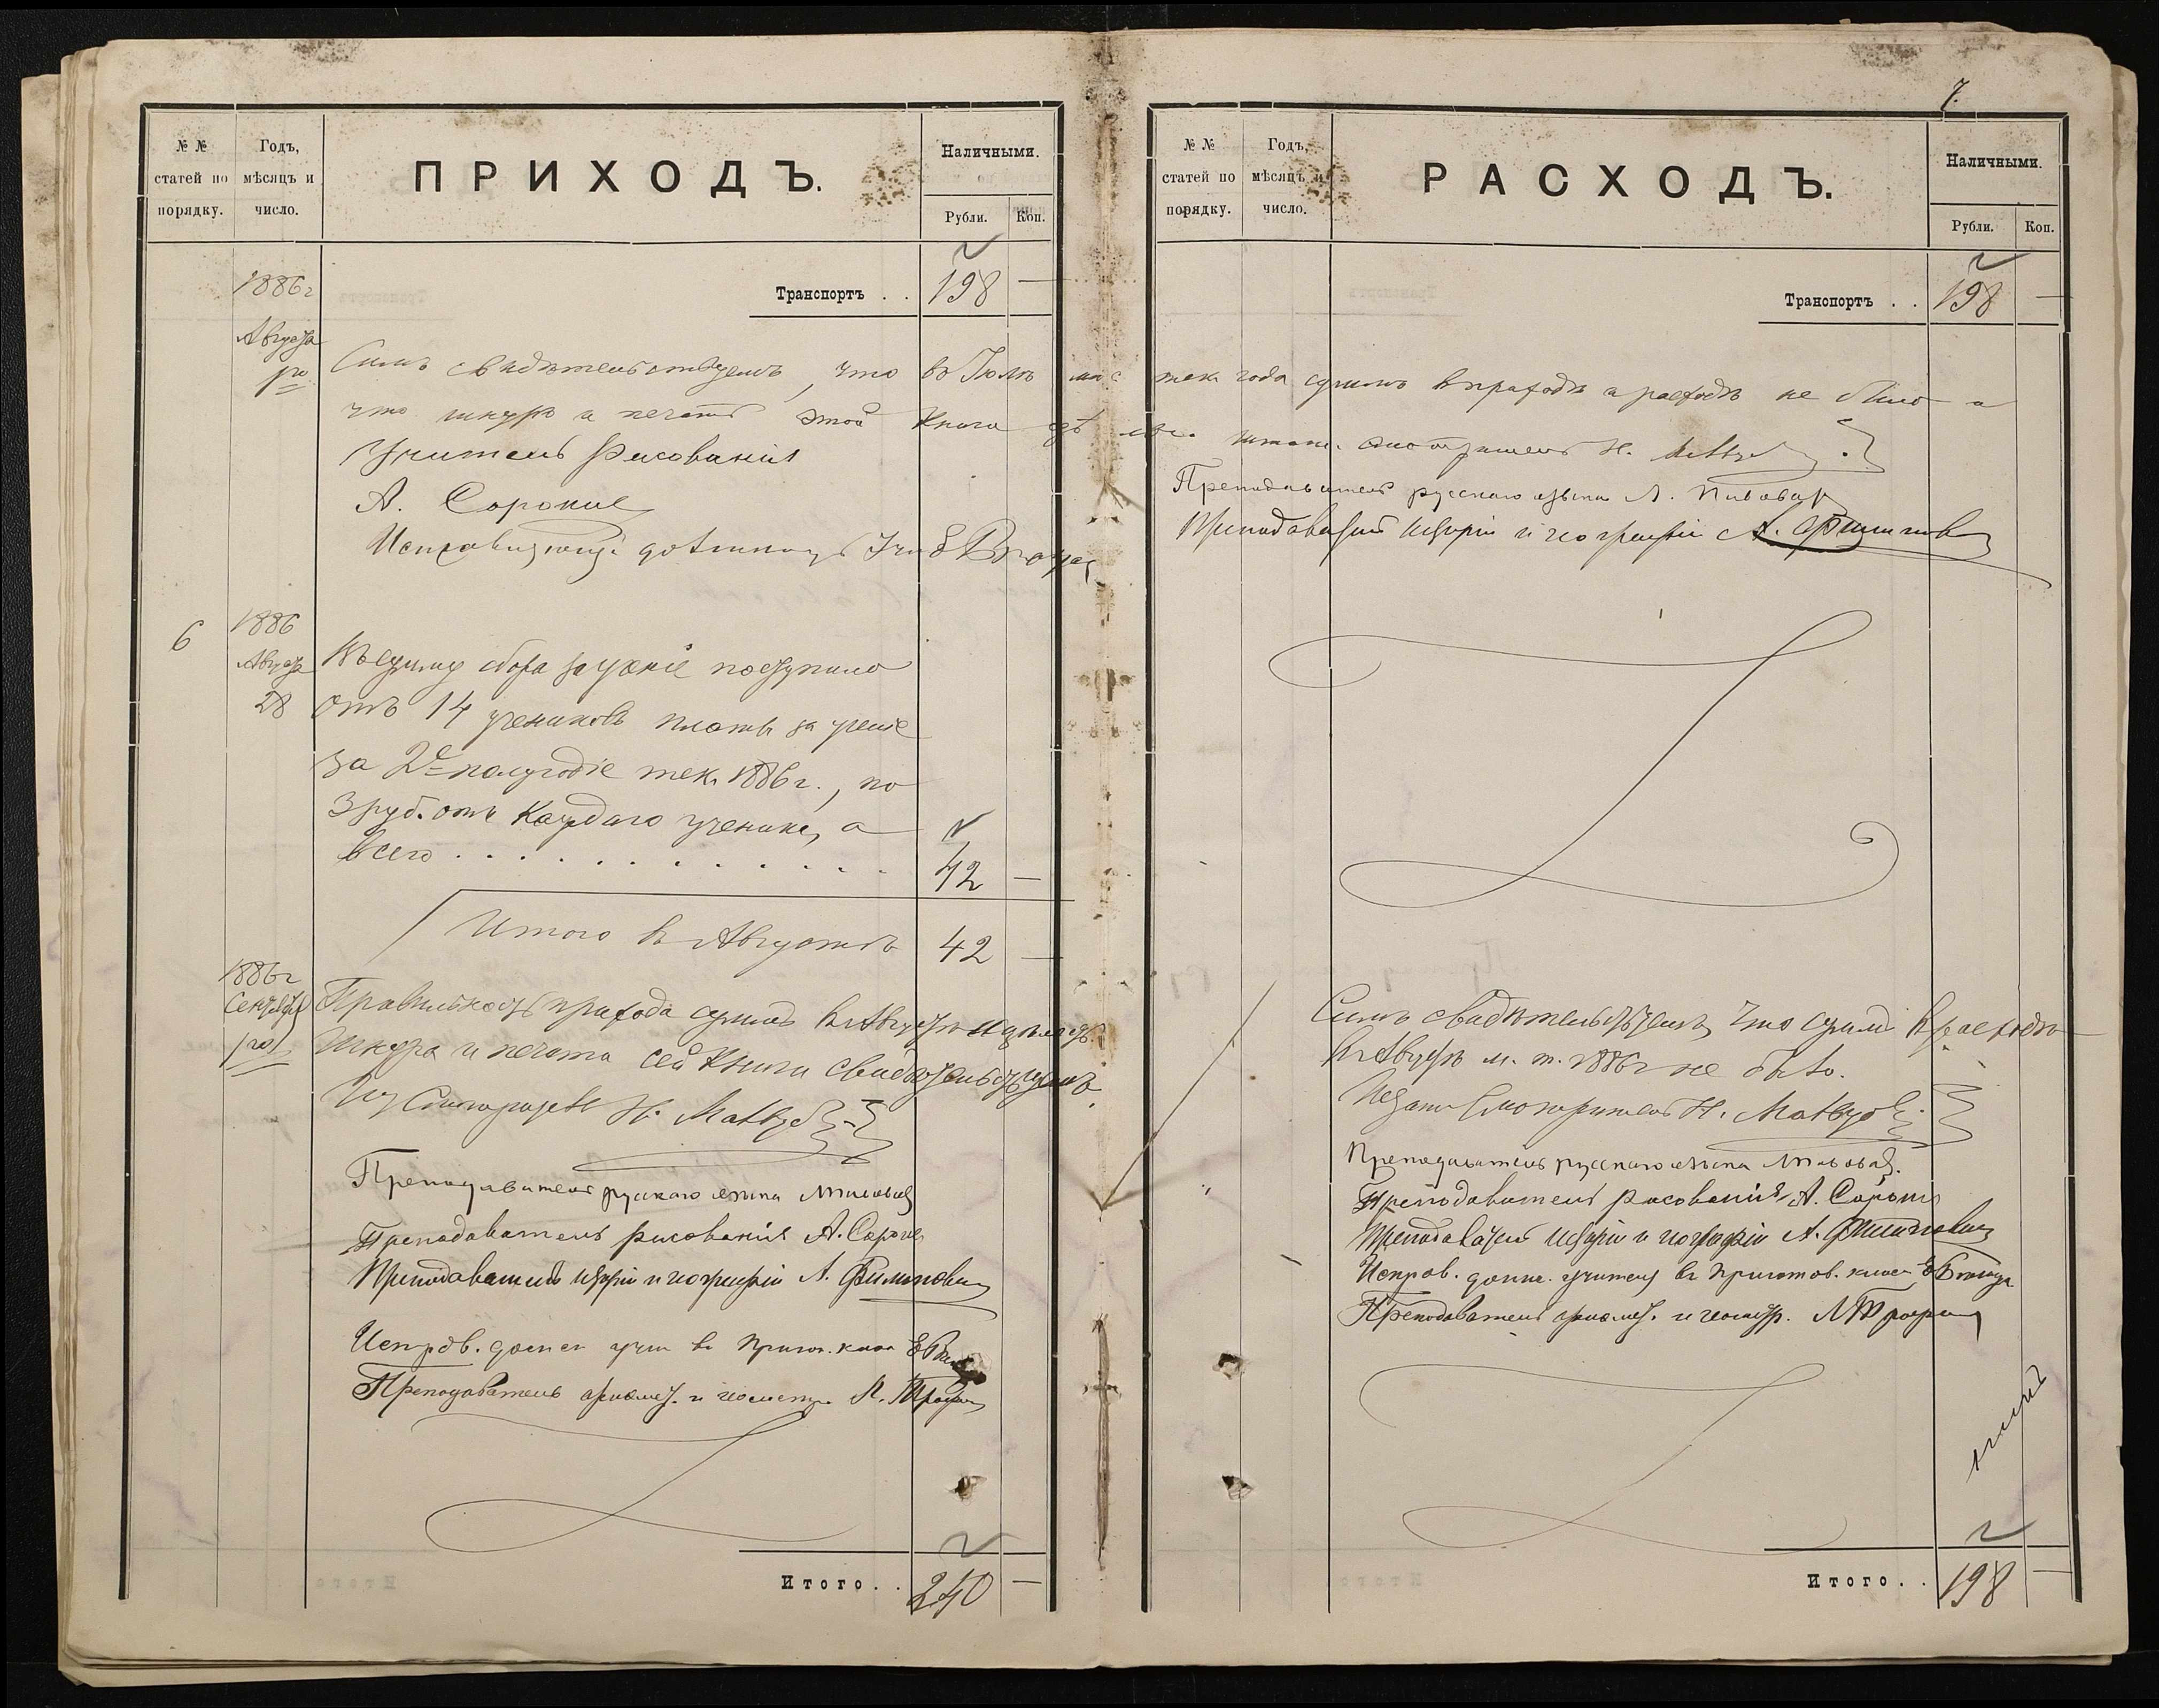 7.
№ №
статей по
порядку.
Годъ,
мѣсяцъ и
число.
ПРИХОДЪ.
Наличными.
Рубли.
Коп.
1886г
Транспортъ . .
198 —
Августа
1го
Симъ свидѣтельствуемъ, что въ Іюлѣ мѣс тек. года суммъ въ приходѣ и расходѣ не было и
что шнуръ и печать этой книги
Учитель Рисованія
А. Сорокин
Исправляющій должность
6
1886
Августа
28
Въ сумму сбора за ученіе поступило
отъ 14 учениковъ платы за ученіе
за 2е полугодіе тек. 1886г., по
3 руб. отъ каждаго ученика, а
всего . . . . . . . . . . . .
42 —
Итого въ Августѣ 42 —
1886г
Сентября
1го
Правильность прихода суммъ въ Августѣ и цѣлость
шнура и печати сей книги свидѣтельствуемъ
Смотритель Н.
Преподаватель русскаго языка
Преподаватель рисованія А. Сорокин
Преподаватель исторіи и географіи А. Филипович
Исправ. должн. учит. въ пригот. клас
Преподаватель ариѳмет. и геометр. Л.
Итого . . 240 —
№ №
статей по
порядку.
Годъ,
мѣсяцъ и
число.
РАСХОДЪ.
Наличными.
Рубли.
Коп.
Транспортъ . .
198 —
штатн. смотритель Н.
Преподаватель русскаго языка Л. Пивовар
Преподаватель исторіи и географіи А. Филипович
Симъ свидѣтельствуемъ, что суммъ въ расходѣ
въ Августѣ м. т. 1886г не было.
Штатн. Смотритель Н.
Преподаватель русскаго языка
Преподаватель рисованія А. Сорокин
Преподаватель исторіи и географіи А. Филипович
Исправ. должн. учителя въ приготов. класс
Преподаватель ариѳмет. и геометр. Л.
Итого . . 198 —